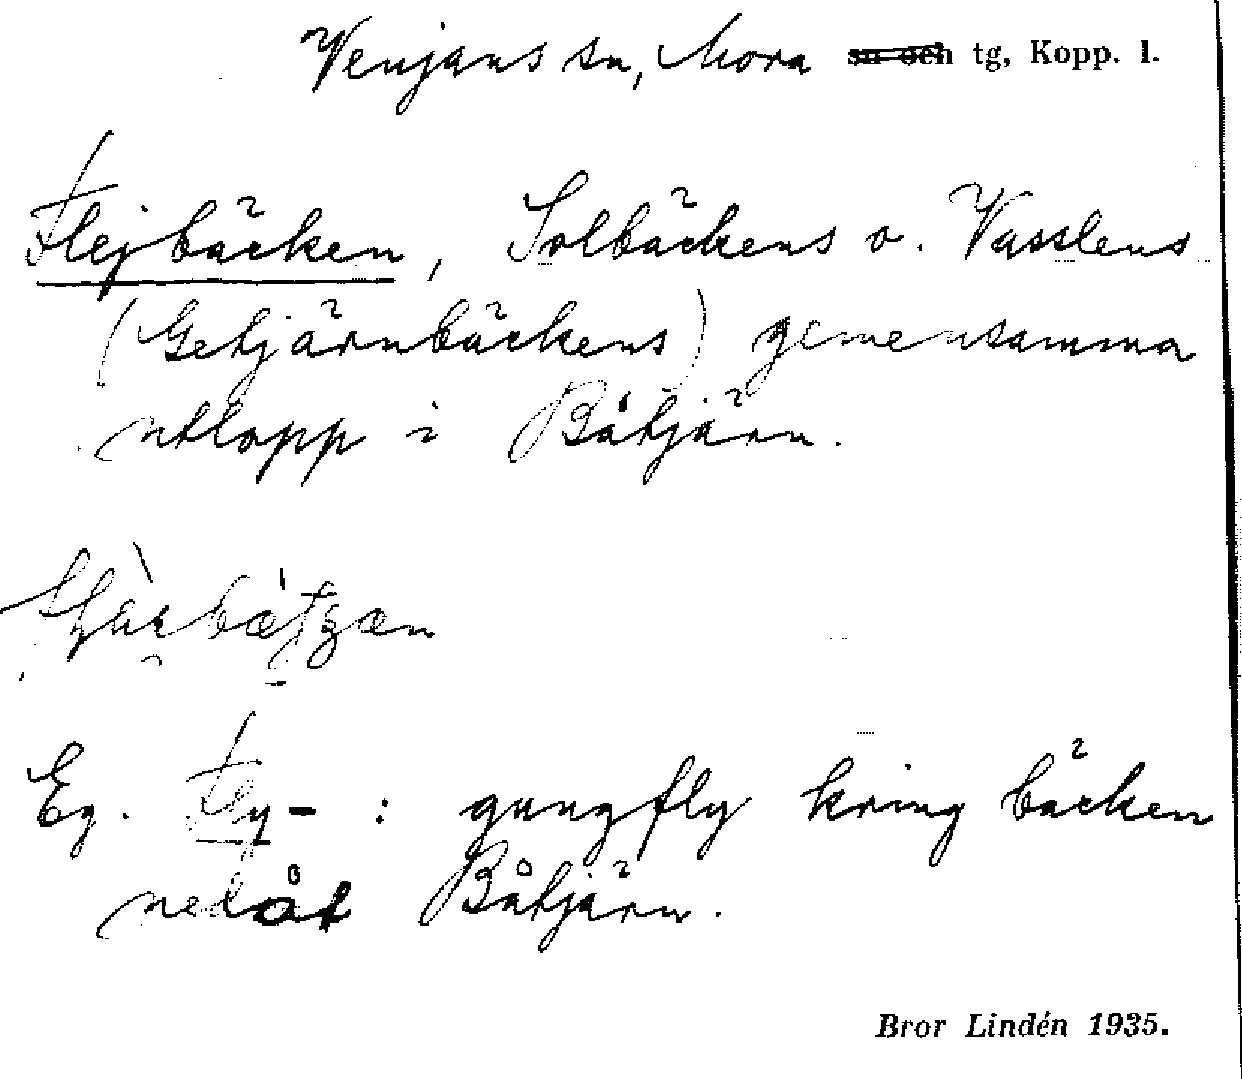 Venjans sn, Mora sn och tg, Kopp. l.
Flejbäcken, Solbäckens o. Vasslens
(Getjärnbäckens) gemensamma
utlopp i Båtjärn.
Eg. Fly- : gungfly kring bäcken
nedåt Båtjärn.
Bror Lindén 1935.